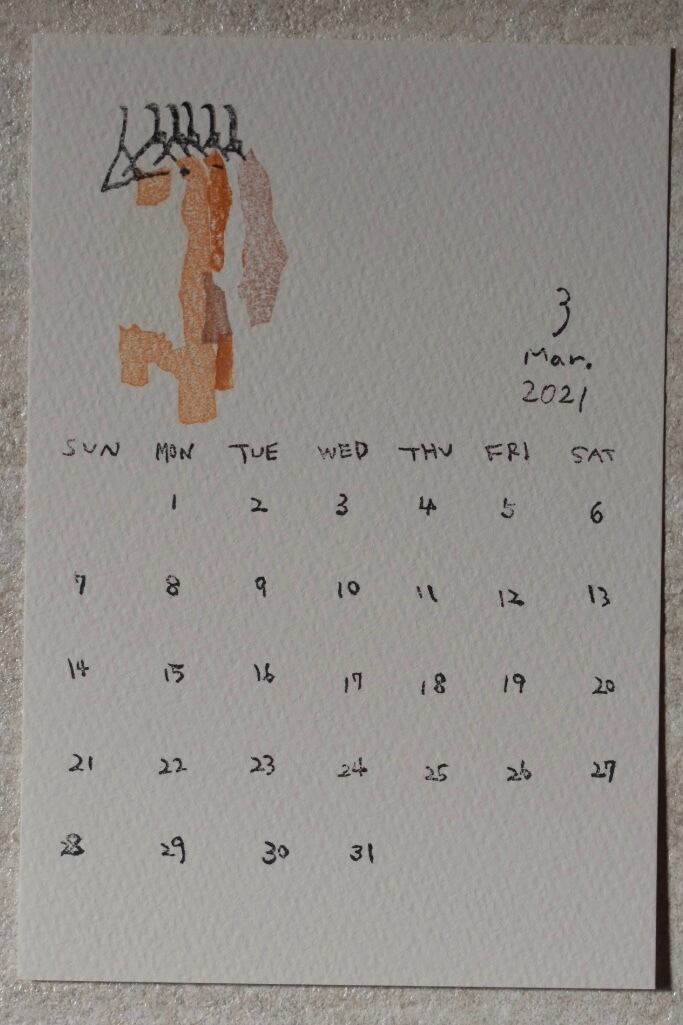 3
Mar.
2021
SUN MON TUE WED THU FRI SAT
1 2 3 4 5 6
7 8 9 10 11 12 13
14 15 16 17 18 19 20
21 22 23 24 25 26 27
28 29 30 31